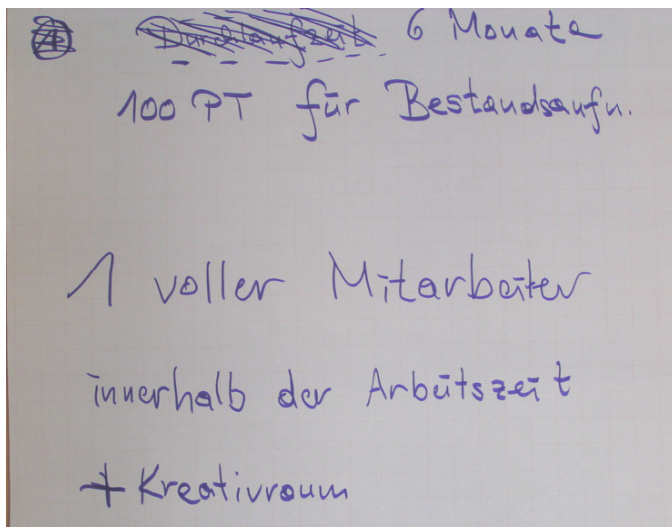 Durchlaufzeit 6 Monate
100 PT für Bestandsaufn.
1 voller Mitarbeiter
innerhalb der Arbeitszeit
+ Kreativraum